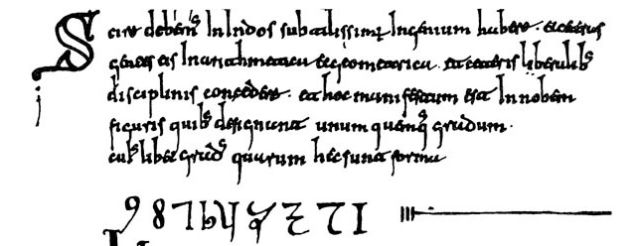 Scire debemꝰ In Indos subtilissimū Ingenium habere · et ceteras
gentes eis In arithmetica et geometrica · et ceteris liberalibꝰ
disciplinis concedere · et hoc manifestum est In nobem
figuris quibꝰ designant unum quenqꝰ gradum ·
cuiꝰ libet gradꝰ quarum hec sunt forma
9 8 7 6 5 4 3 2 1